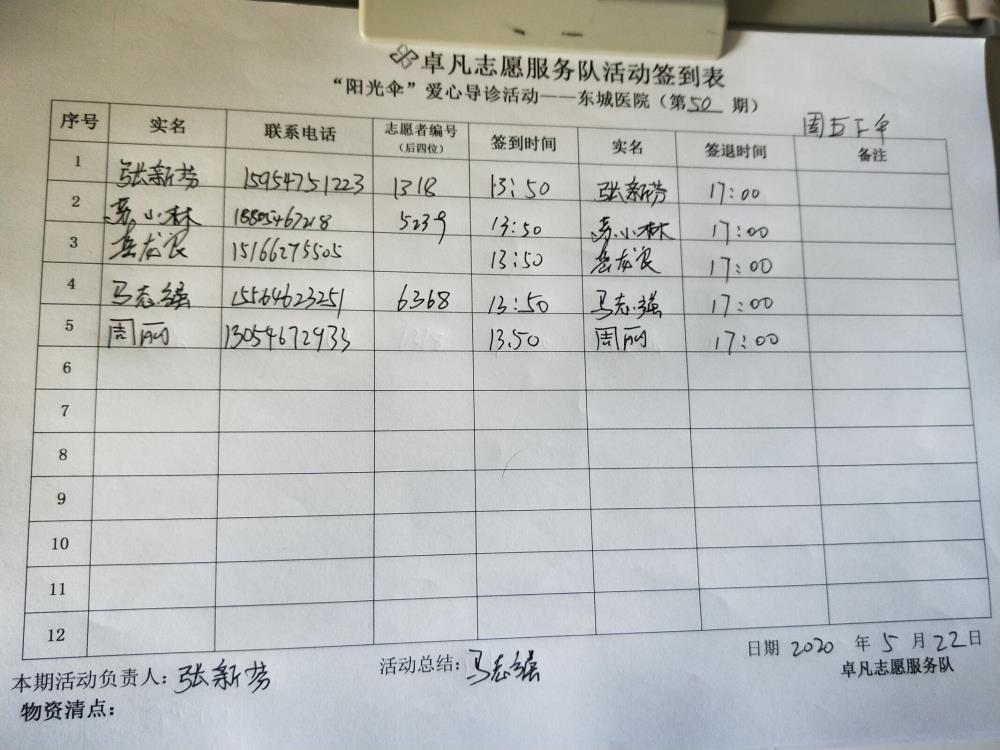 卓凡志愿服务队活动签到表
“阳光伞”爱心导诊活动——东城医院（第50期）
周五下午
序号 实名 联系电话 志愿者编号（后四位） 签到时间 实名 签退时间 备注
1 张新芳 15954751223 1318 13:50 张新芳 17:00
2 小林 18805467218 5239 13:50 小林 17:00
3 15166275505 13:50 17:00
4 马志强 15564623251 6368 13:50 马志强 17:00
5 周丽 13054672933 13.50 周丽 17:00
6
7
8
9
10
11
12
日期 2020 年 5 月 22日
本期活动负责人：张新芳 活动总结：马志强
卓凡志愿服务队
物资清点：